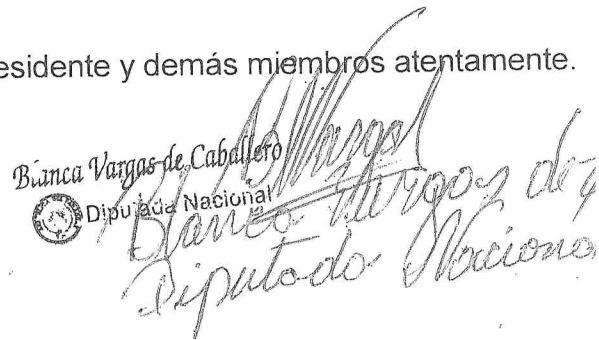 esidente y demás miembros atentamente.
Blanca Vargas de Caballero
Diputada Nacional
Vargas
Blanca Vargas de
Diputada Naciona